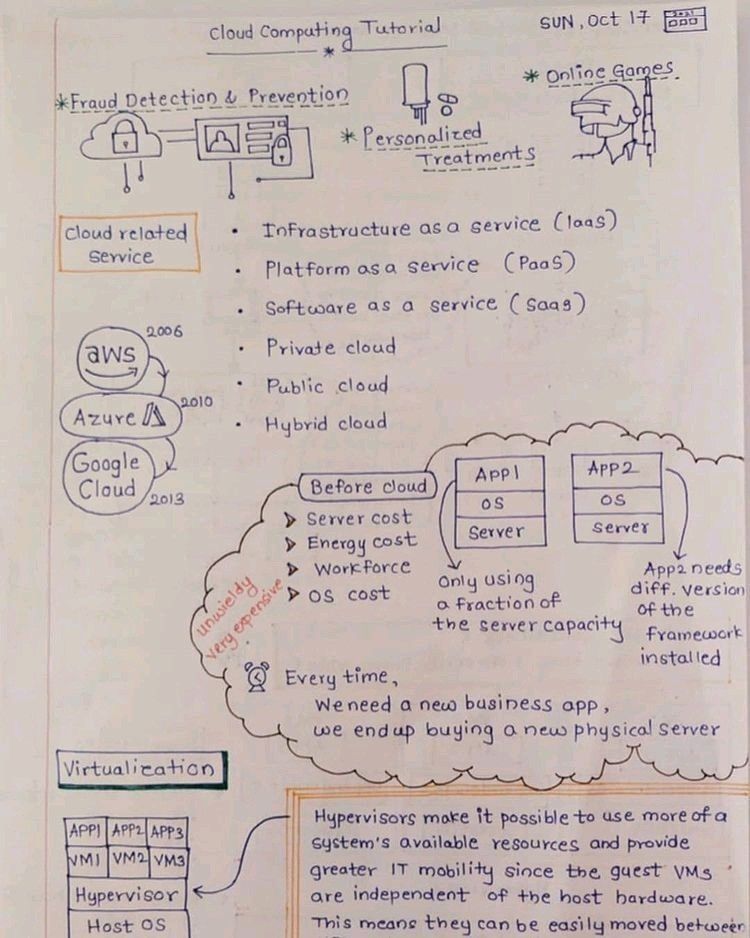 Cloud Computing Tutorial
SUN, Oct 17
2021
*Fraud Detection & Prevention
* Personalized
Treatments
* Online Games
Cloud related
Service
• Infrastructure as a service (IaaS)
• Platform as a service (PaaS)
• Software as a service (SaaS)
• Private cloud
• Public cloud
• Hybrid cloud
aws
2006
Azure
2010
Google
Cloud
2013
Before cloud
➤ Server cost
➤ Energy cost
➤ Workforce
➤ OS cost
unwieldy
very expensive
APP1
OS
Server
APP2
OS
Server
Only using
a fraction of
the server capacity
App2 needs
diff. version
of the
framework
installed
Every time,
We need a new business app,
we end up buying a new physical server
Virtualization
APP1 APP2 APP3
VM1 VM2 VM3
Hypervisor
Host OS
Hypervisors make it possible to use more of a
system's available resources and provide
greater IT mobility since the guest VMs
are independent of the host hardware.
This means they can be easily moved between